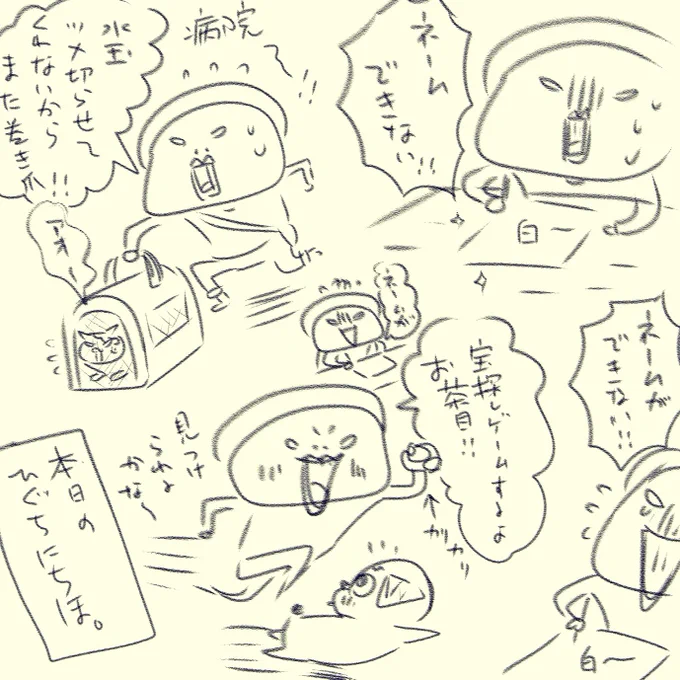 ネーム
できない!!
白ー
病院
水玉
ツメ切らせて
くれないから
また巻き爪!!
アオー
ネームが
ネームが
できない!!
白〜
宝探しゲームするよ
お茶目!!
カリカリ
見つけ
られる
かな〜
本日の
ひぐちにちほ。